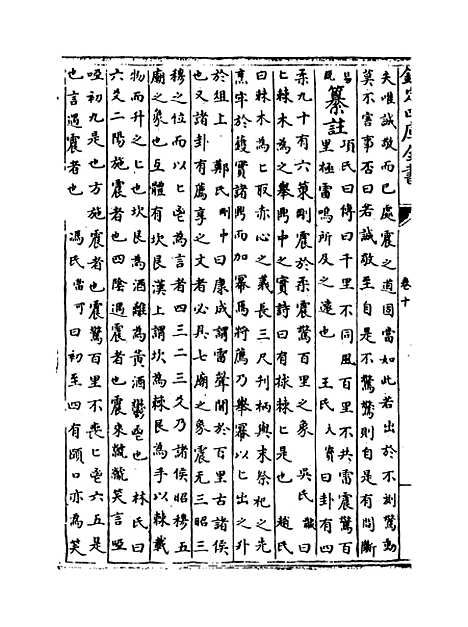 欽定四庫全書
卷十
失唯誠敬而已處震之道固當如此若出於不測驚動
莫不害事否曰若誠敬至自是不驚驚則自是有間斷
纂註
項氏曰傳曰千里不同風百里不共雷震驚百
里極雷鳴所及之遠也 王氏大寶曰卦有四
柔九十有六策剛震於柔震驚百里之象 吳氏曰
匕棘木為之舉鼎中之實詩曰有捄棘匕是也 趙氏
曰棘木為匕取赤心之義長三尺刋柄與末祭祀之先
烹牢於鑊實諸鼎而加冪焉將薦乃舉冪以匕出之升
於俎上 鄭氏剛中曰康成謂雷聲聞於百里古諸侯
也又諸卦有薦享之文者必具七廟之象震无三昭三
穆之位而以匕鬯為言者四三二三爻乃諸侯昭穆五
廟之象也互體有坎艮漢上謂坎為棘艮為手以棘載
物而升之匕也坎艮為酒離為黃酒鬱鬯也 林氏曰
六爻二陽施震者也四陰遇震者也震來虩虩笑言啞
啞初九是也方施震者也震驚百里不喪匕鬯六五是
也言遇震者也 馮氏當可曰初至四有頤口亦為笑